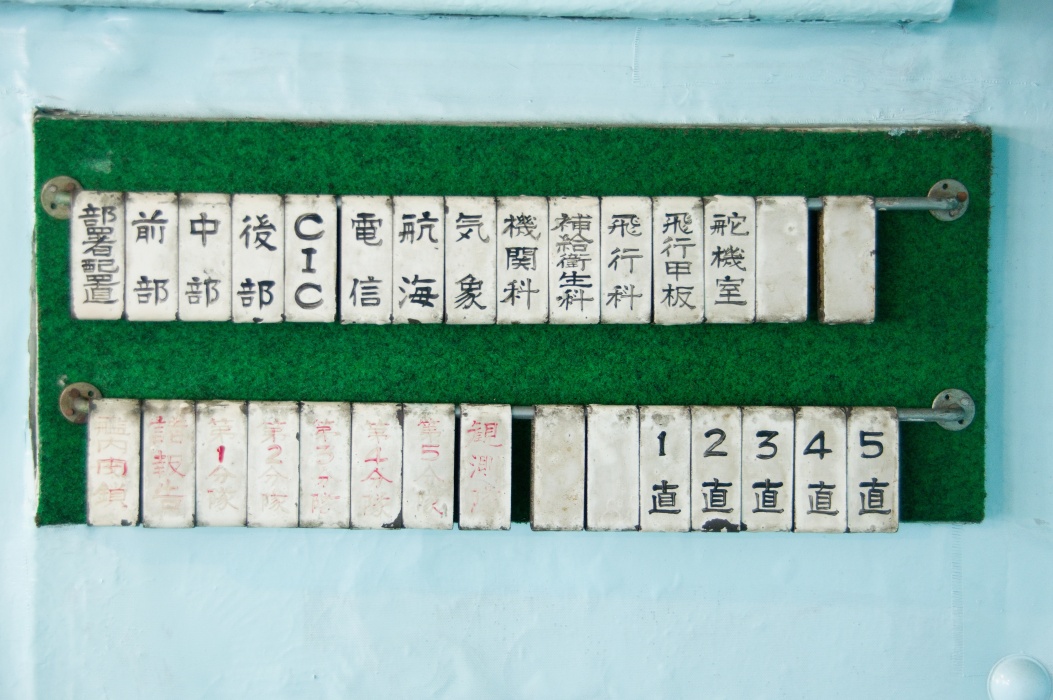 部署配置
前部
中部
後部
CIC
電信
航海
気象
機関科
補給衛生科
飛行科
飛行甲板
舵機室
報告
第1分隊
第2分隊
第3分隊
第4分隊
第5分隊
観測
1直
2直
3直
4直
5直